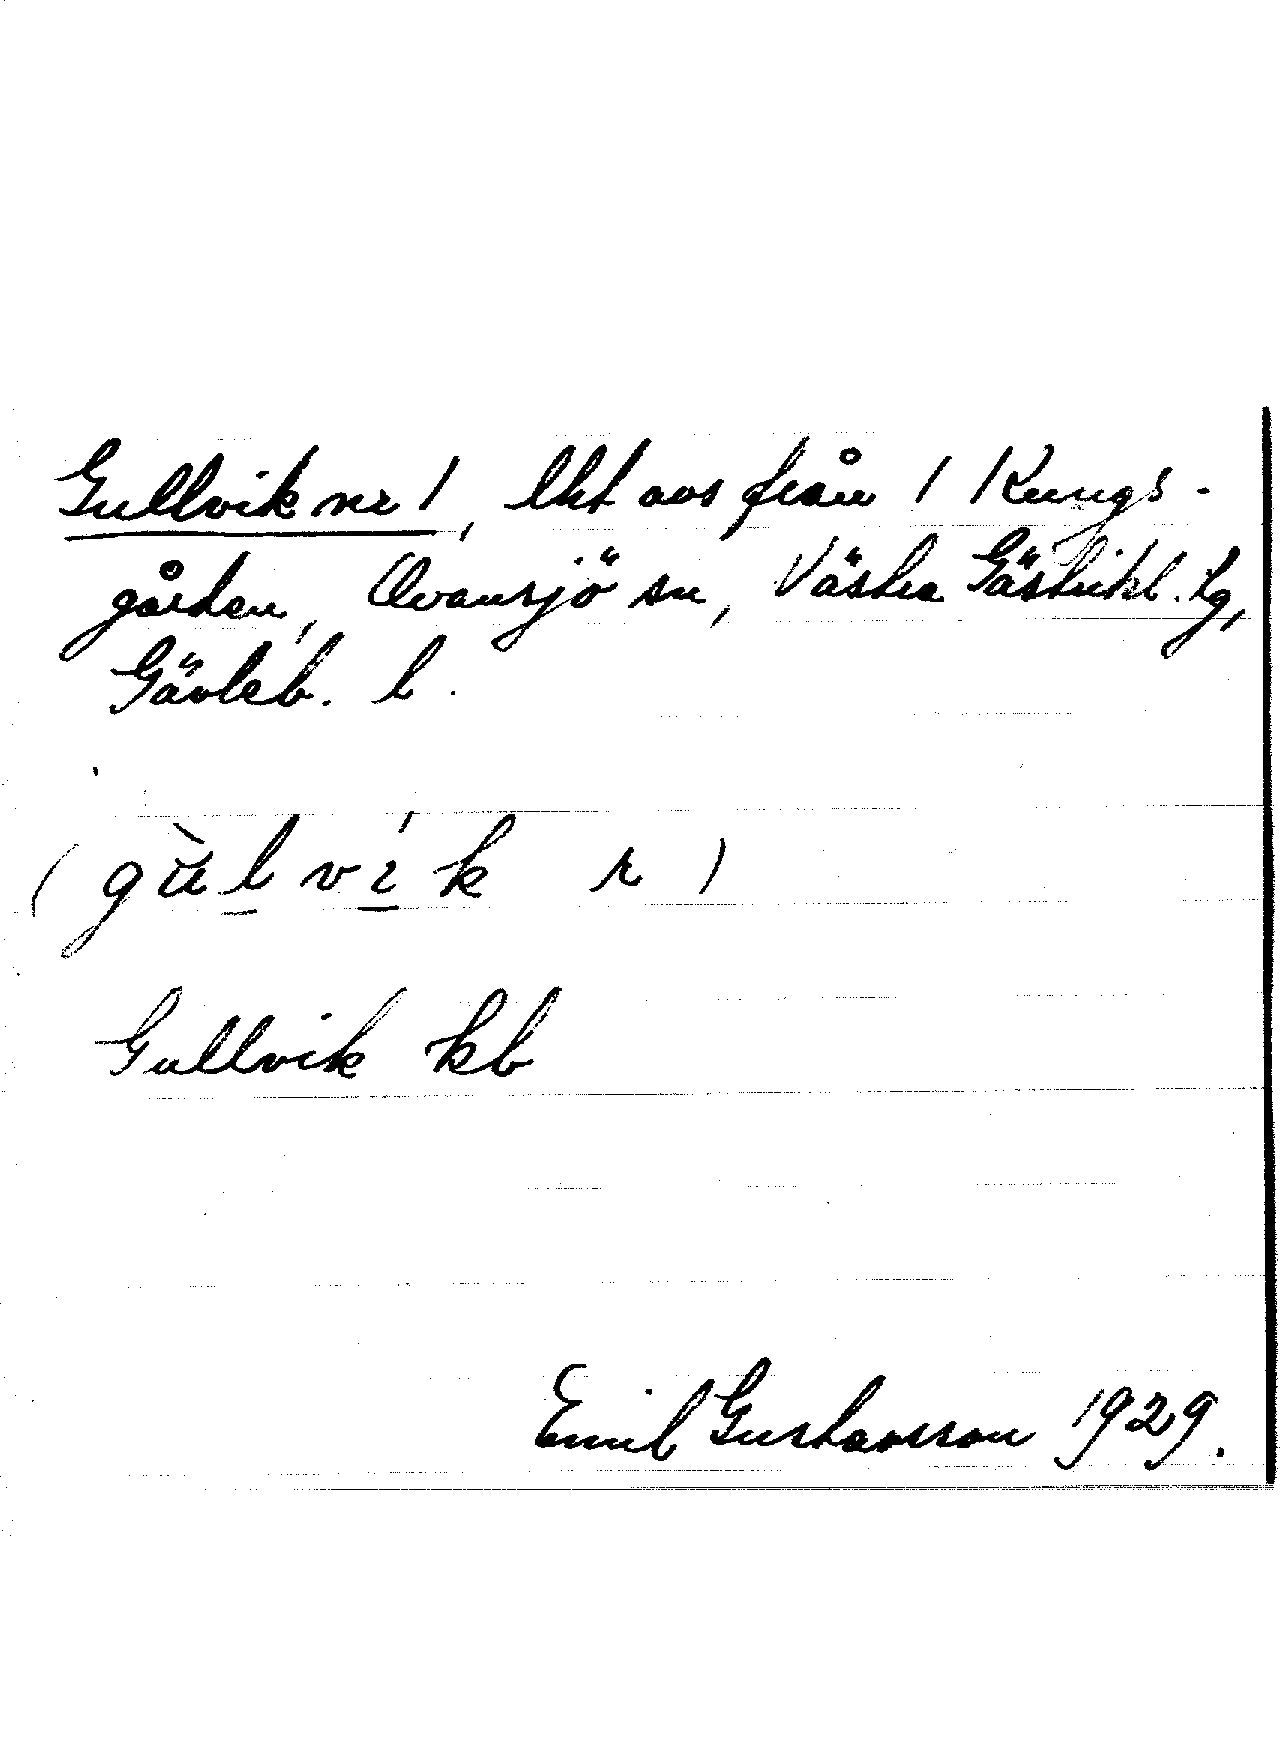 Gullvik nr 1, lht avs från 1 Kungs-
gården, Ovansjö sn, Västra Gästrikl. tg,
Gävleb. l.
(gùlvík r)
Gullvik kb
Emil Gustavsson 1929.